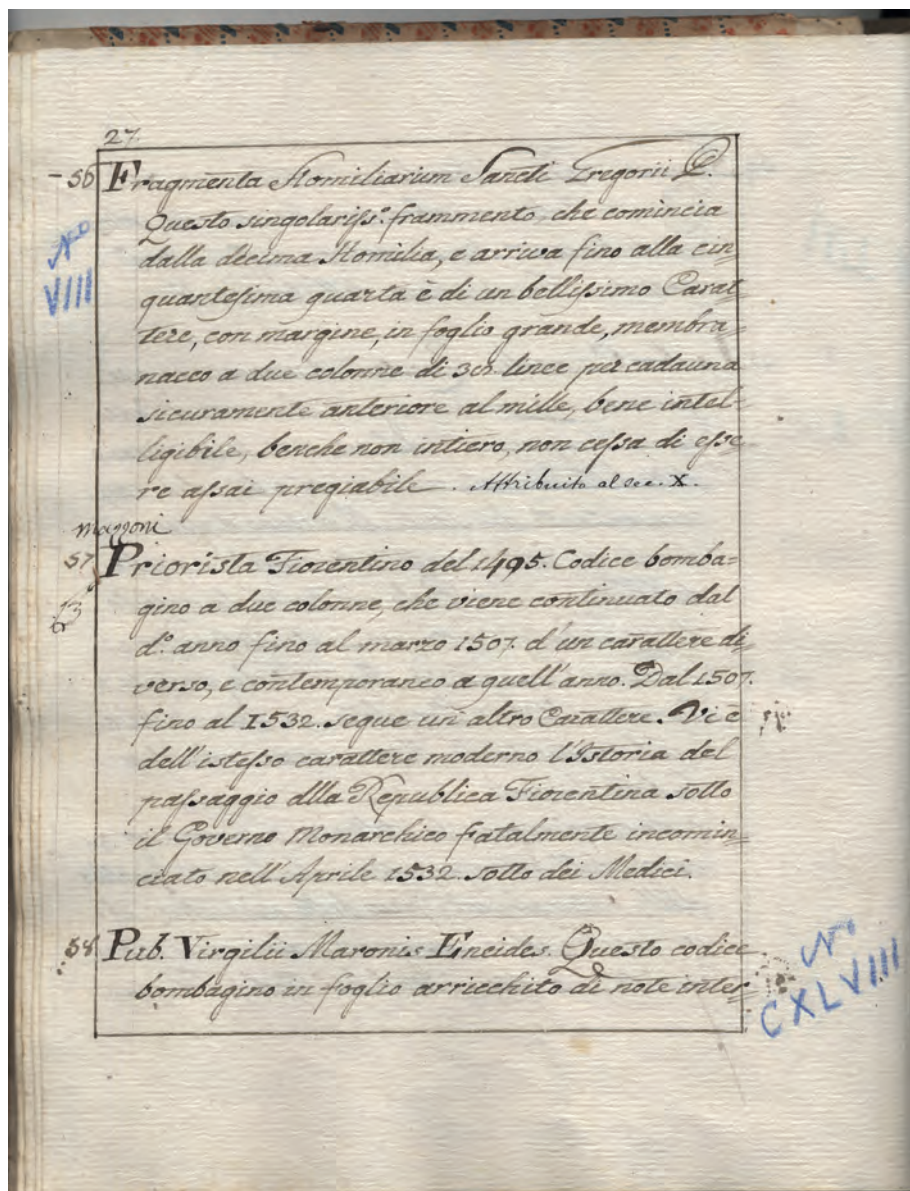 27.
- 56 Fragmenta Homiliarum Sancti Gregorii P.
Questo singolariss.º frammento, che comincia
N.º
VIII
dalla decima Homilia, e arriva fino alla cin=
quantesima quarta è di un bellissimo Carat=
tere, con margine, in foglio grande, membra=
nacco a due colonne di linee per cadauna
sicuramente anteriore al mille, bene intel=
ligibile, benche non intiero, non cessa di esse=
re assai pregiabile. Attribuito al sec. X.
Mazzoni
57 Priorista Fiorentino del 1495. Codice bomba=
gino a due colonne, che viene continuato dal
d.º anno fino al marzo 1507. d'un carattere di=
verso, e contemporaneo a quell'anno. Dal 1507.
fino al 1532. segue un altro Carattere. Vi è
dell'istesso carattere moderno l'Istoria del
passaggio dlla Republica Fiorentina sotto
il Governo Monarchico fatalmente incomin=
ciato nell'Aprile 1532. sotto dei Medici.
58 Pub. Virgilii Maronis Eneides. Questo codice
bombagino in foglio arricchito di note inter=
N.º
CXLVIII